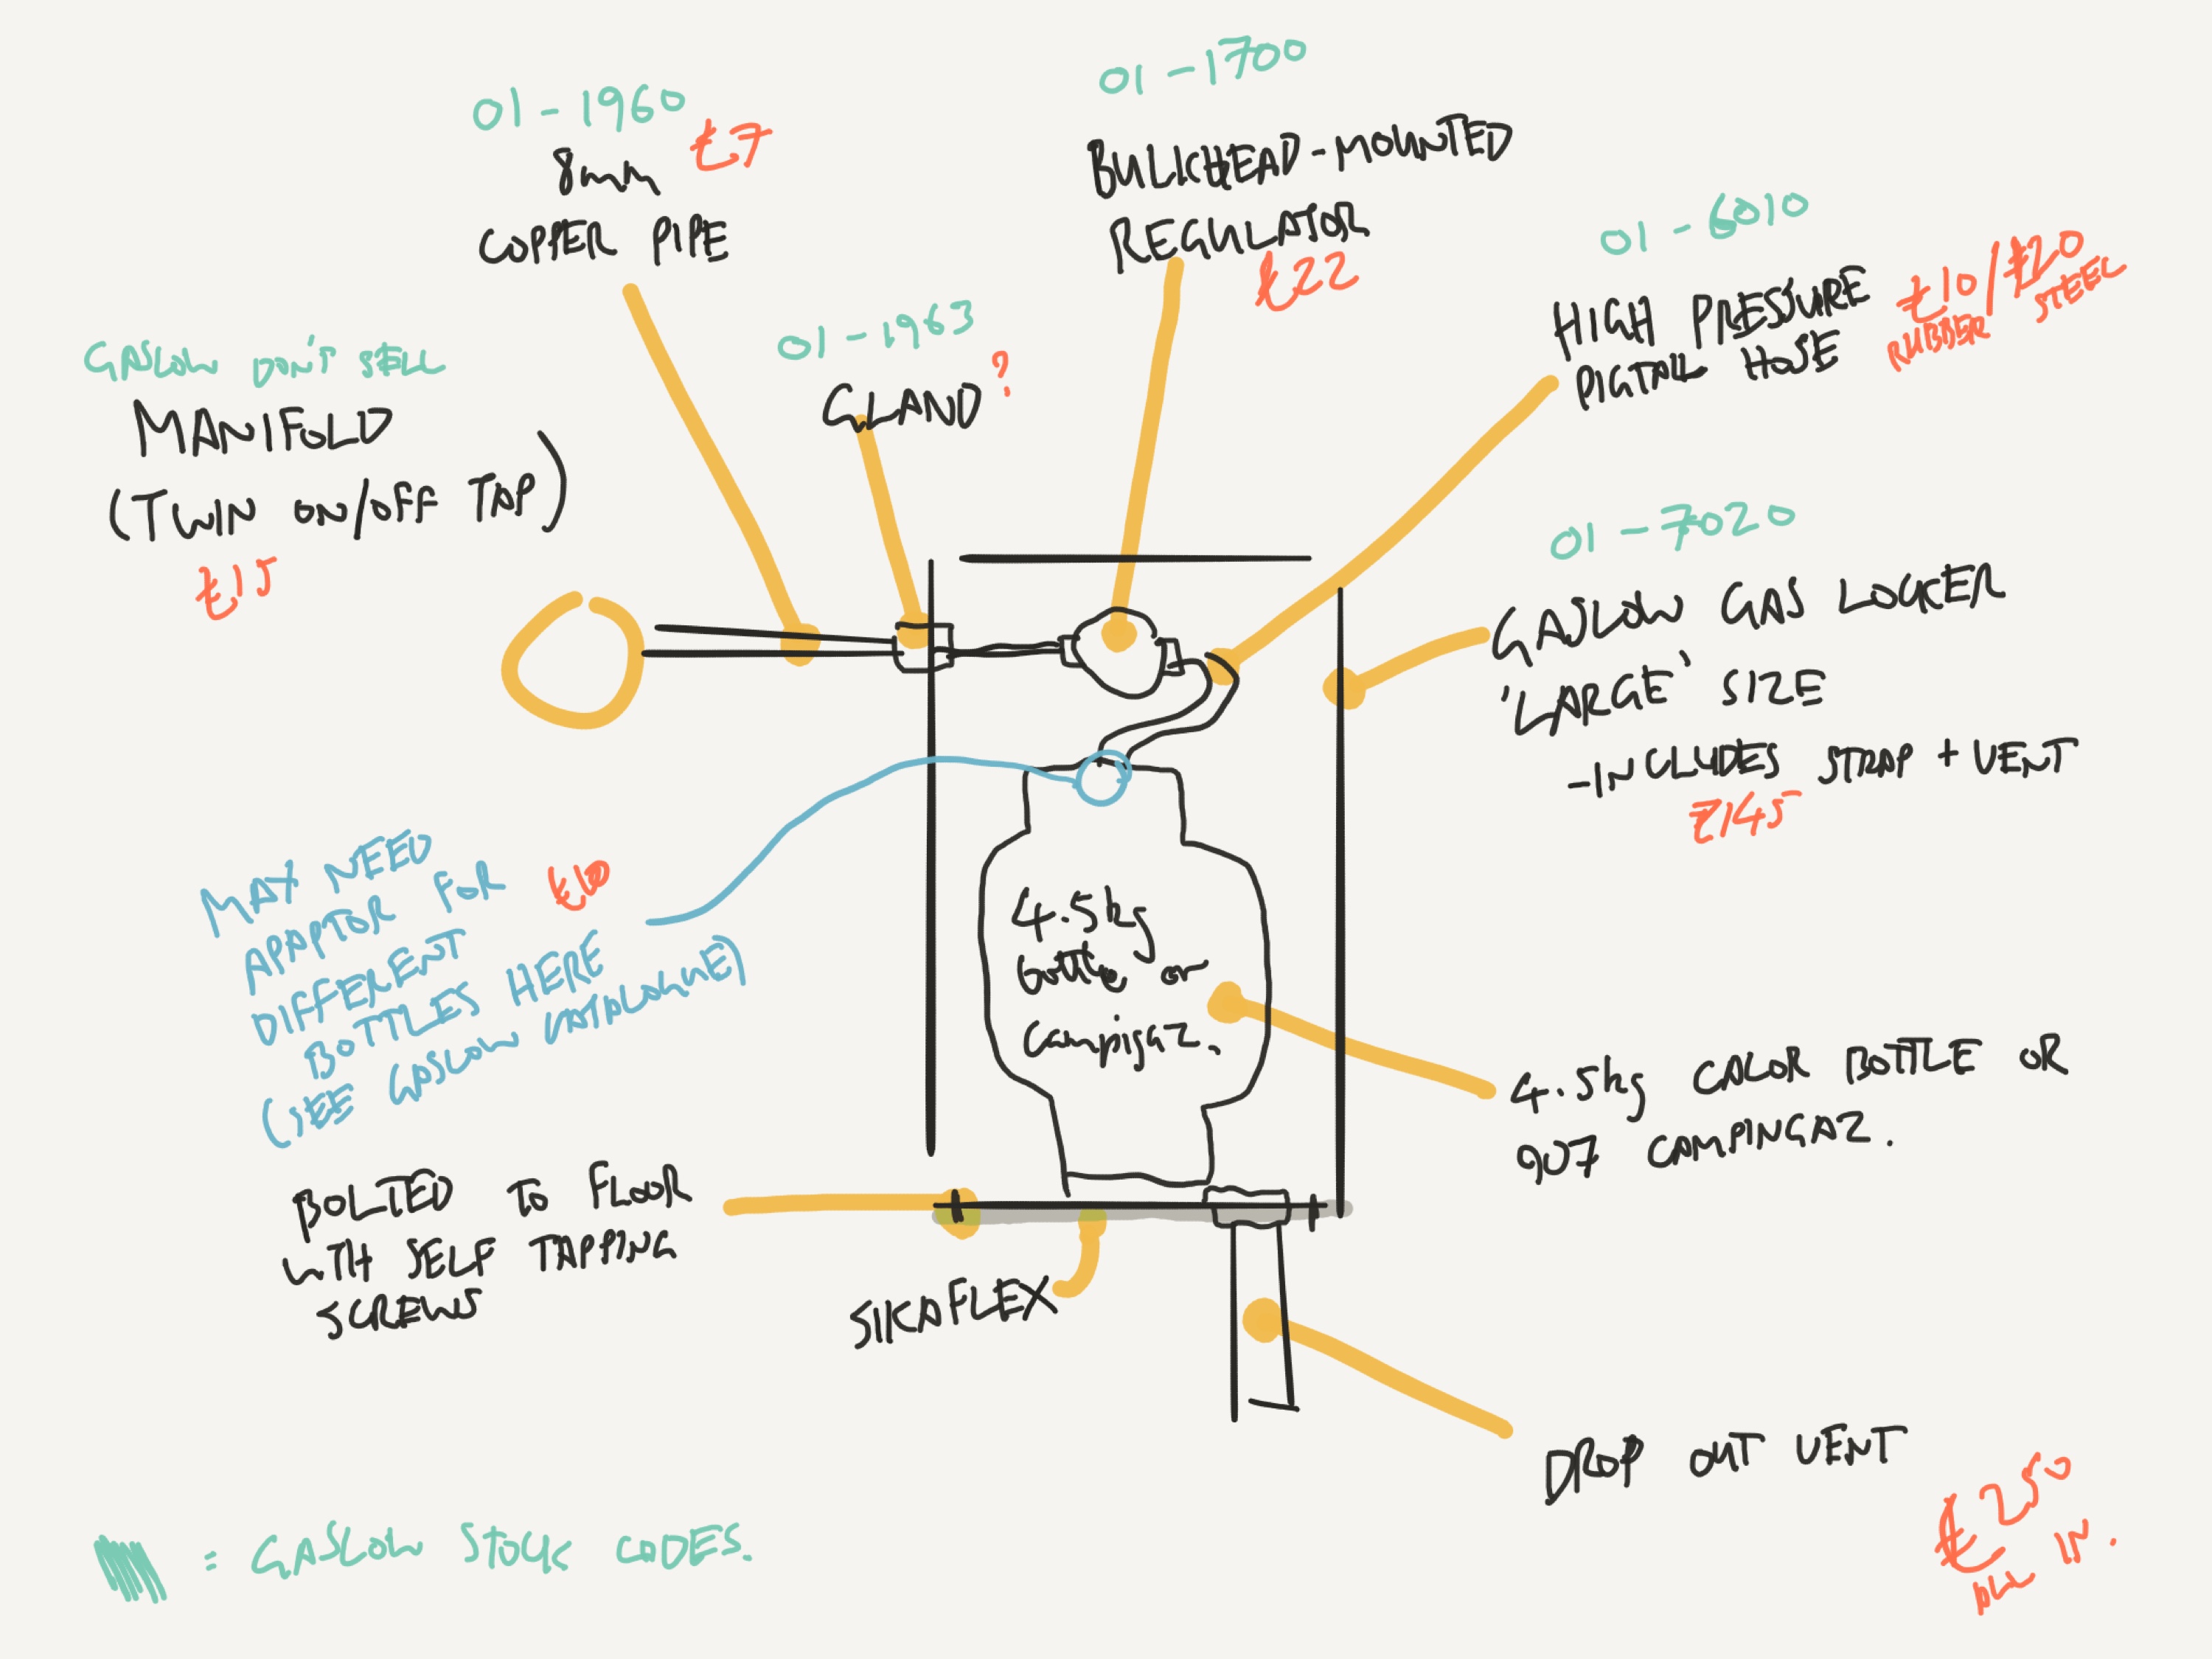 01-1960
8mm £7
COPPER PIPE
01-1700
BULKHEAD-MOUNTED
REGULATOR
£22
01-6010
HIGH PRESSURE
PIGTAIL HOSE
£10/£20
RUBBER STEEL
GASLOW DON'T SELL
MANIFOLD
(TWIN ON/OFF TAP)
£15
01-1963
GLAND?
01-7020
GASLOW GAS LOCKER
'LARGE' SIZE
-INCLUDES STRAP + VENT
£145
MAY NEED
ADAPTOR FOR £10
DIFFERENT
BOTTLES HERE
(SEE GASLOW CATALOGUE)
4.5kg
bottle or
Campigaz.
4.5kg CALOR BOTTLE OR
907 CAMPINGAZ.
BOLTED TO FLOOR
WTH SELF TAPPING
SCREWS
SIKAFLEX
DROP OUT VENT
£250
ALL IN.
= GASLOW STOCK CODES.